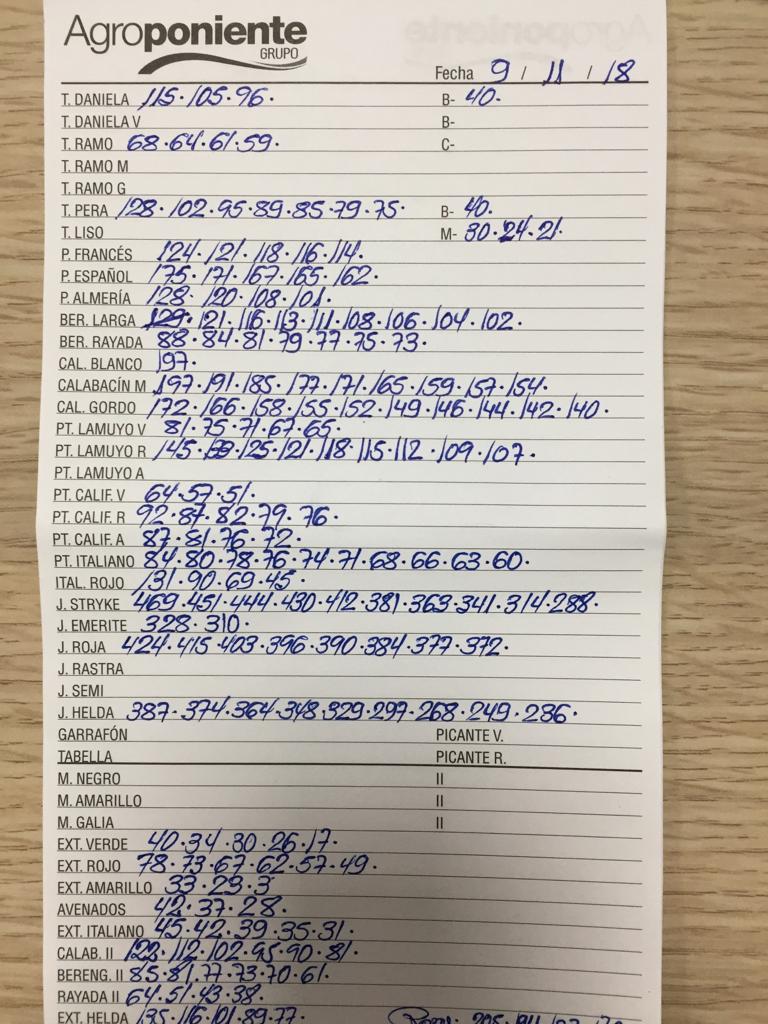 Agroponiente
GRUPO
Fecha 9 / 11 / 18
T. DANIELA 115·105·96· B- 40·
T. DANIELA V B-
T. RAMO 68·64·61·59· C-
T. RAMO M
T. RAMO G
T. PERA 128·102·95·89·85·79·75· B- 40·
T. LISO M- 30·24·21·
P. FRANCÉS 124·121·118·116·114·
P. ESPAÑOL 175·171·167·165·162·
P. ALMERÍA 128·120·108·101·
BER. LARGA 129·121·116·113·111·108·106·104·102·
BER. RAYADA 88·84·81·79·77·75·73·
CAL. BLANCO 197·
CALABACÍN M 197·191·185·177·171·165·159·157·154·
CAL. GORDO 172·166·158·155·152·149·146·144·142·140·
PT. LAMUYO V 81·75·71·67·65·
PT. LAMUYO R 145·125·121·118·115·112·109·107·
PT. LAMUYO A
PT. CALIF. V 64·57·51·
PT. CALIF. R 92·87·82·79·76·
PT. CALIF. A 87·81·76·72·
PT. ITALIANO 84·80·78·76·74·71·68·66·63·60·
ITAL. ROJO 131·90·69·45·
J. STRYKE 469·451·444·430·412·381·363·341·314·288·
J. EMERITE 328·310·
J. ROJA 424·415·403·396·390·384·377·372·
J. RASTRA
J. SEMI
J. HELDA 387·374·364·348·329·297·268·249·236·
GARRAFÓN PICANTE V.
TABELLA PICANTE R.
M. NEGRO II
M. AMARILLO II
M. GALIA II
EXT. VERDE 40·34·30·26·17·
EXT. ROJO 78·73·67·62·57·49·
EXT. AMARILLO 33·23·3
AVENADOS 42·37·28·
EXT. ITALIANO 45·42·39·35·31·
CALAB. II 122·112·102·95·90·81·
BERENG. II 85·81·77·73·70·61·
RAYADA II 64·51·43·38·
EXT. HELDA 135·116·101·89·77·